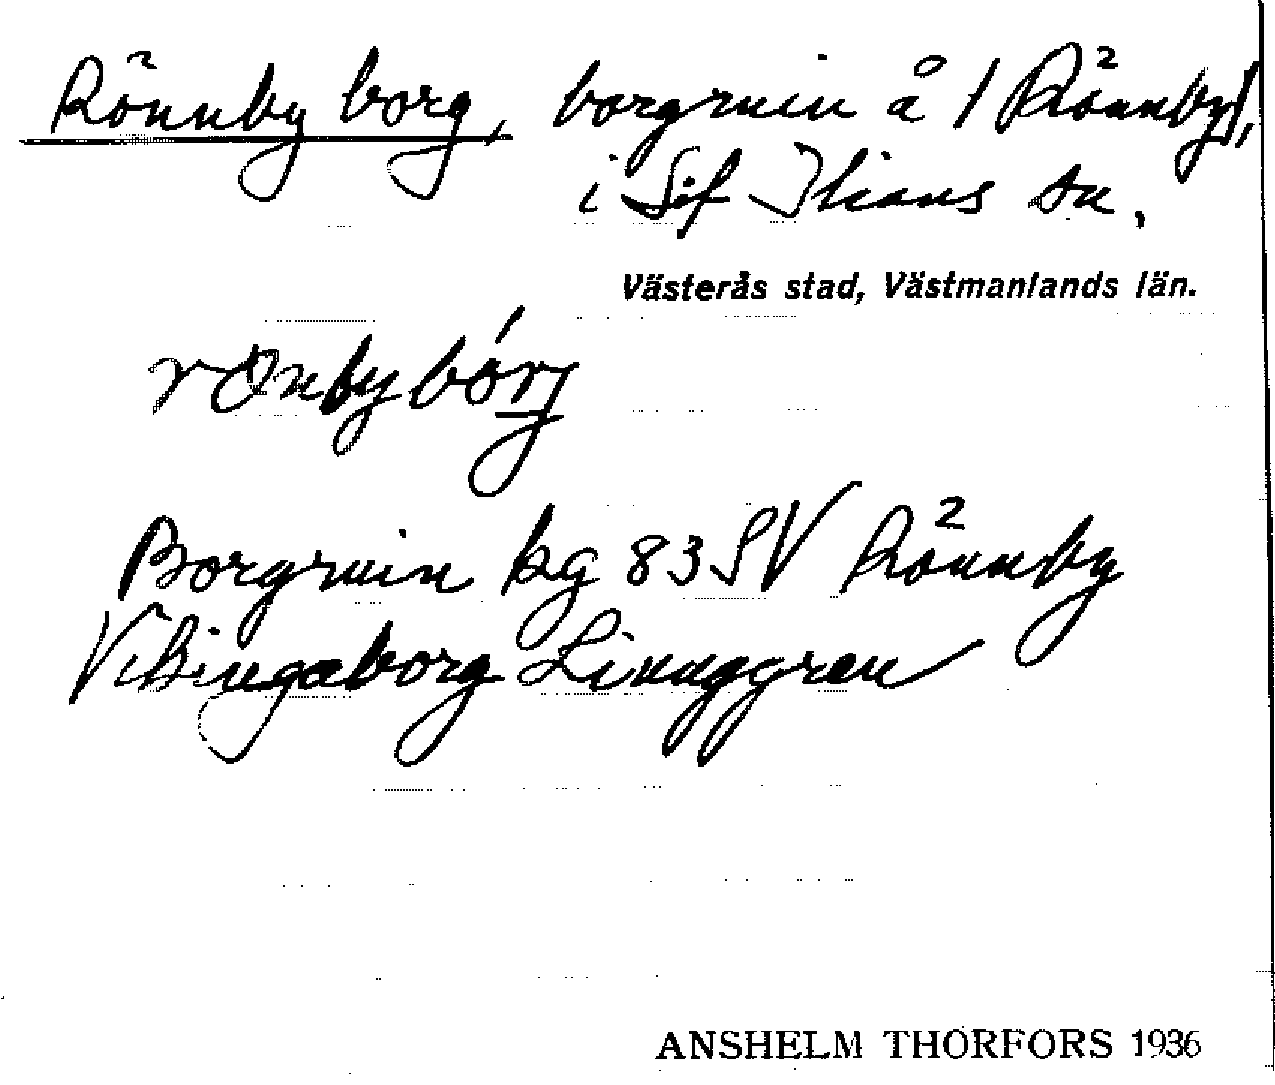 Rönnby borg, borgruin å 1 Rönnby,
i S:t Ilians sn.
Västerås stad, Västmanlands län.
Borgruin kg 83 SV Rönnby
Vikingaborg Linnggren
ANSHELM THORFORS 1936